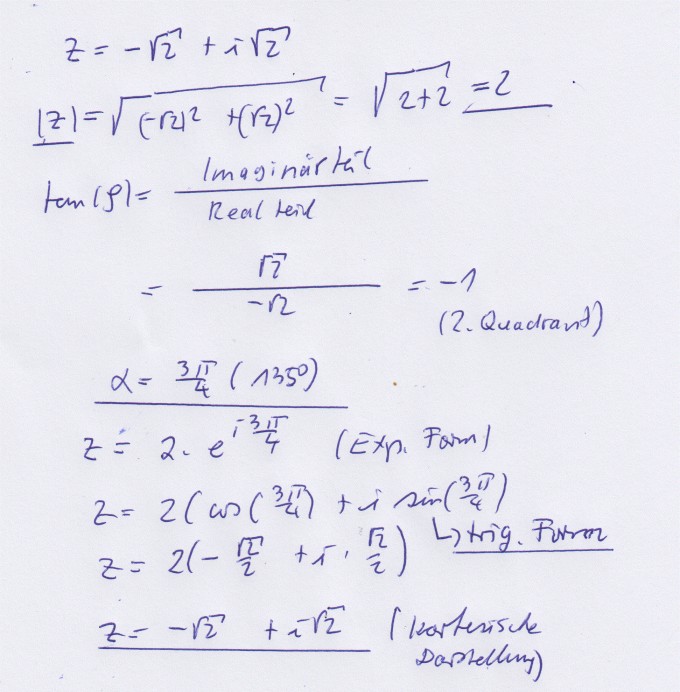 z = -√2 + i√2
|z| = √((-√2)² + (√2)²) = √(2+2) = 2
tan(φ) = Imaginärteil / Realteil
= √2 / -√2 = -1
(2. Quadrant)
α = 3π/4 (135°)
z = 2 · e^(i 3π/4) (Exp. Form)
z = 2(cos(3π/4) + i sin(3π/4)
↳ trig. Form
z = 2(-√2/2 + i · √2/2)
z = -√2 + i√2 (kartesische
Darstellung)